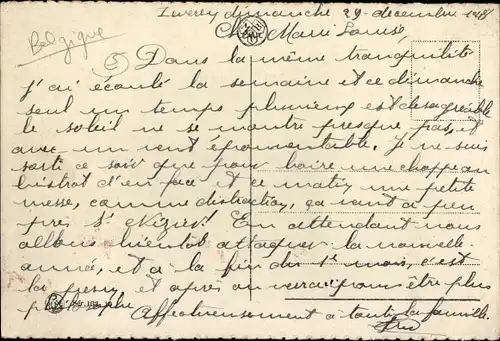 Belgique
dimanche 29 decembre 1918
Chère Marie Louise,
(5) Dans la même tranquilité
j'ai écoulé la semaine et ce dimanche
seul un temps pluvieux est désagréable
le soleil ne se montre presque pas, et
avec un vent épouventable. Je ne suis
sorti ce soir que pour boire une choppe au
bistrot d'en face et ce matin une petite
messe, comme distraction, ça vaut à peu
près St Nizier! En attendant nous
allons bientôt attaquer la nouvelle
année, et à la fin du 1er mois, c'est
la perm et après on verra pour être plus
Affectueusement à toute la famille.